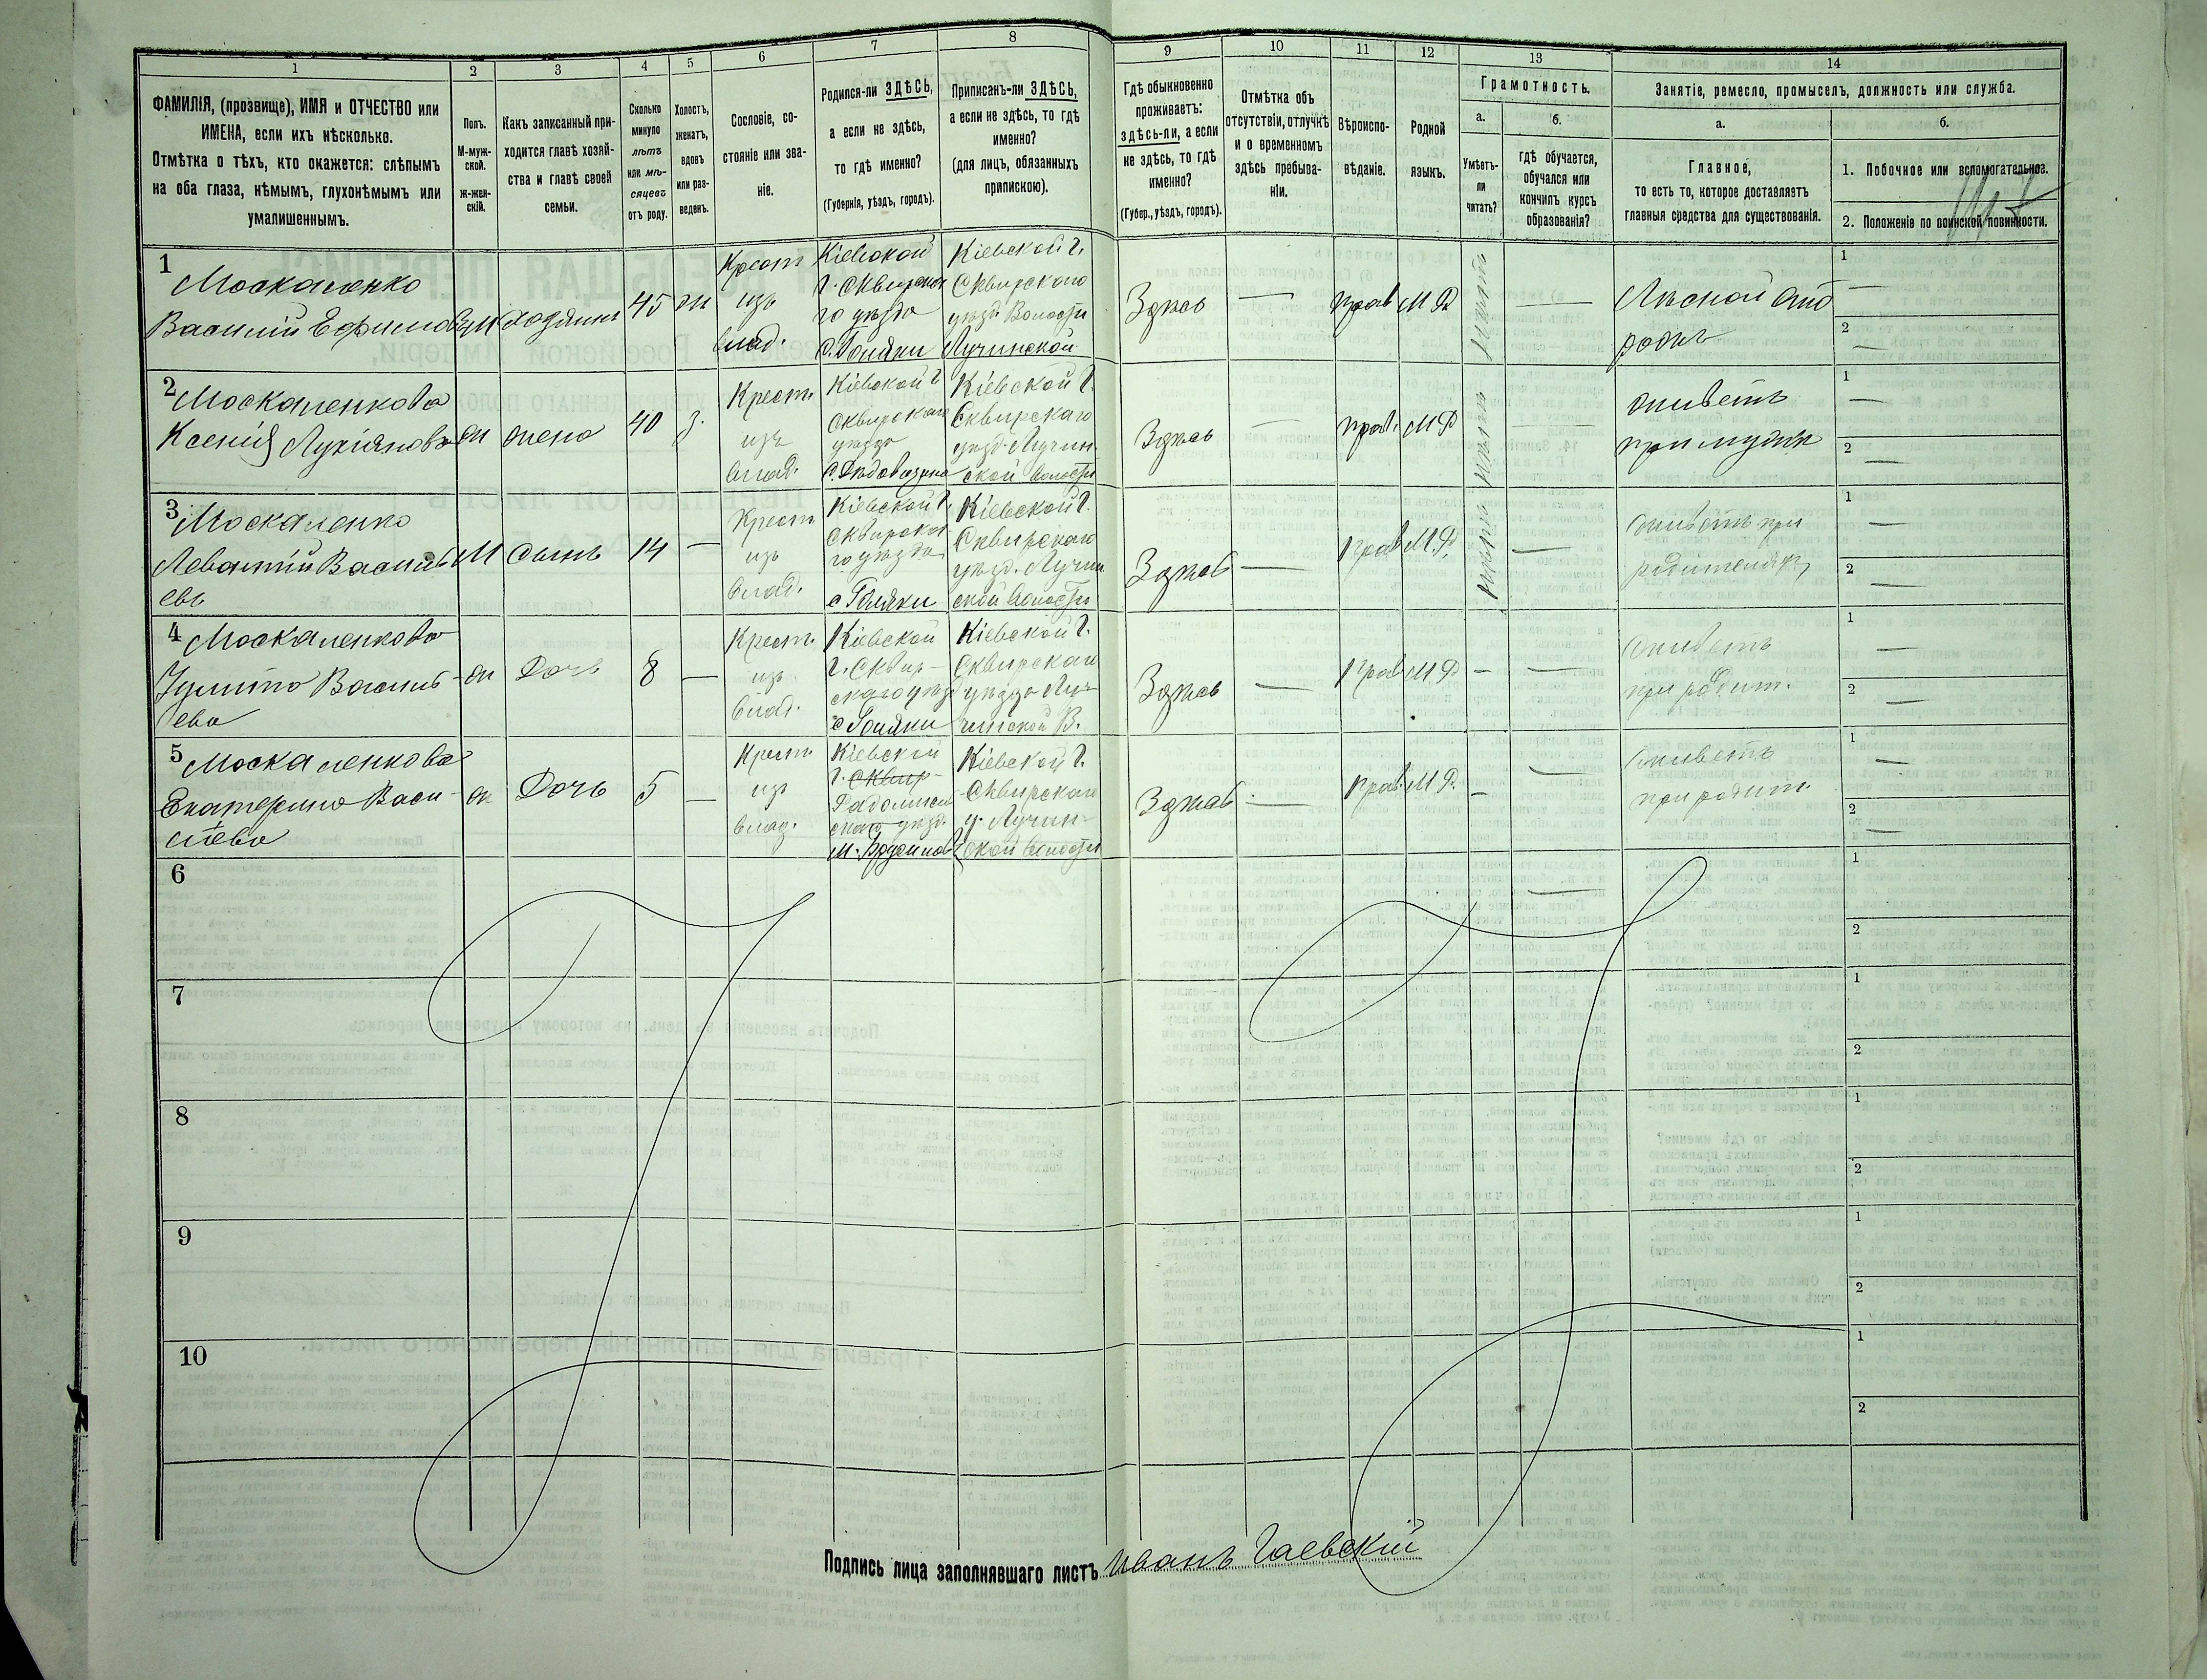 1 2 3 4 5 6 7 8 9 10 11 12 13 14
ФАМИЛІЯ, (прозвище), ИМЯ и ОТЧЕСТВО или
ИМЕНА, если ихъ нѣсколько.
Отмѣтка о тѣхъ, кто окажется: слѣпымъ
на оба глаза, нѣмымъ, глухонѣмымъ или
умалишеннымъ.
Полъ.
М-муж-
ской.
Ж-жен-
скій.
Какъ записанный при-
ходится главѣ хозяй-
ства и главѣ своей
семьи.
Сколько
минуло
лѣтъ
или мѣ-
сяцевъ
отъ роду.
Холостъ,
женатъ,
вдовъ
или раз-
веденъ.
Сословіе, со-
стояніе или зва-
ніе.
Родился-ли ЗДѢСЬ,
а если не здѣсь,
то гдѣ именно?
(Губернія, уѣздъ, городъ).
Приписанъ-ли ЗДѢСЬ,
а если не здѣсь, то гдѣ
именно?
(для лицъ, обязанныхъ
припискою).
Гдѣ обыкновенно
проживаетъ:
здѣсь-ли, а если
не здѣсь, то гдѣ
именно?
(Губер., уѣздъ, городъ).
Отмѣтка объ
отсутствіи, отлучкѣ
и о временномъ
здѣсь пребыва-
ніи.
Вѣроиспо-
вѣданіе.
Родной
языкъ.
Грамотность.
а.
Умѣетъ-
ли
читать?
б.
гдѣ обучается,
обучался или
кончилъ курсъ
образованія?
Занятіе, ремесло, промыселъ, должность или служба.
а.
Главное,
то есть то, которое доставляетъ
главныя средства для существованія.
б.
1. Побочное или вспомогательное.
2. Положеніе по воинской повинности.
1
Москаленко
Василій Ефимовъ
М
хозяинъ
45
ж
Крест
изъ
влад.
Кіевской
г. Сквирска
го уѣзда
с. Голяки
Кіевской г.
Сквирского
уѣзд Волости
Лучинской
Здѣсь
—
прав
М Р
—
Лѣсной
1
—
2
—
2
Москаленкова
Ксенія Лукіянова
ж
жена
40
з.
Крест.
изъ
влад.
Кіевской г
Сквирскаго
уѣзда
Кіевской г.
Сквирскаго
уѣзд Лучин
ской волости
Здѣсь
—
прав.
М Р
—
живетъ
при мужѣ
1
—
2
—
3
Москаленко
Левонтій Василь
евъ
М
сынъ
14
—
Крест
изъ
влад.
Кіевской г.
Сквирска
го уѣзда
с Голяки
Кіевской г.
Сквирскаго
уѣзд. Лучин
ской волости
Здѣсь
—
прав
М. Р.
—
живетъ при
родителяхъ
1
—
2
—
4
Москаленкова
Улита Василь-
ева
ж
Дочь
8
—
Крест.
изъ
влад.
Кіевской
г. Сквир-
скаго уѣзд
с Голяки
Кіевской г.
Сквирскаго
уѣзда Лу-
чинской В.
Здѣсь
—
прав
М Р
—
—
живетъ
при родит.
1
—
2
—
5
Москаленкова
Екатерина Васи-
лiева
ж
Дочь
5
—
Крест
изъ
влад.
Кіевской
г. Сквир-
Радомысль
скаго уѣзд.
м. Брусилов
Кіевской г.
Сквирскаго
у. Лучин-
ской волости
Здѣсь
—
прав.
М. Р.
—
—
живетъ
при родит.
1
—
2
—
6
—
1
2
7
1
2
8
1
2
9
1
2
10
1
2
Подпись лица заполнявшаго листъ Иванъ Гаевскій